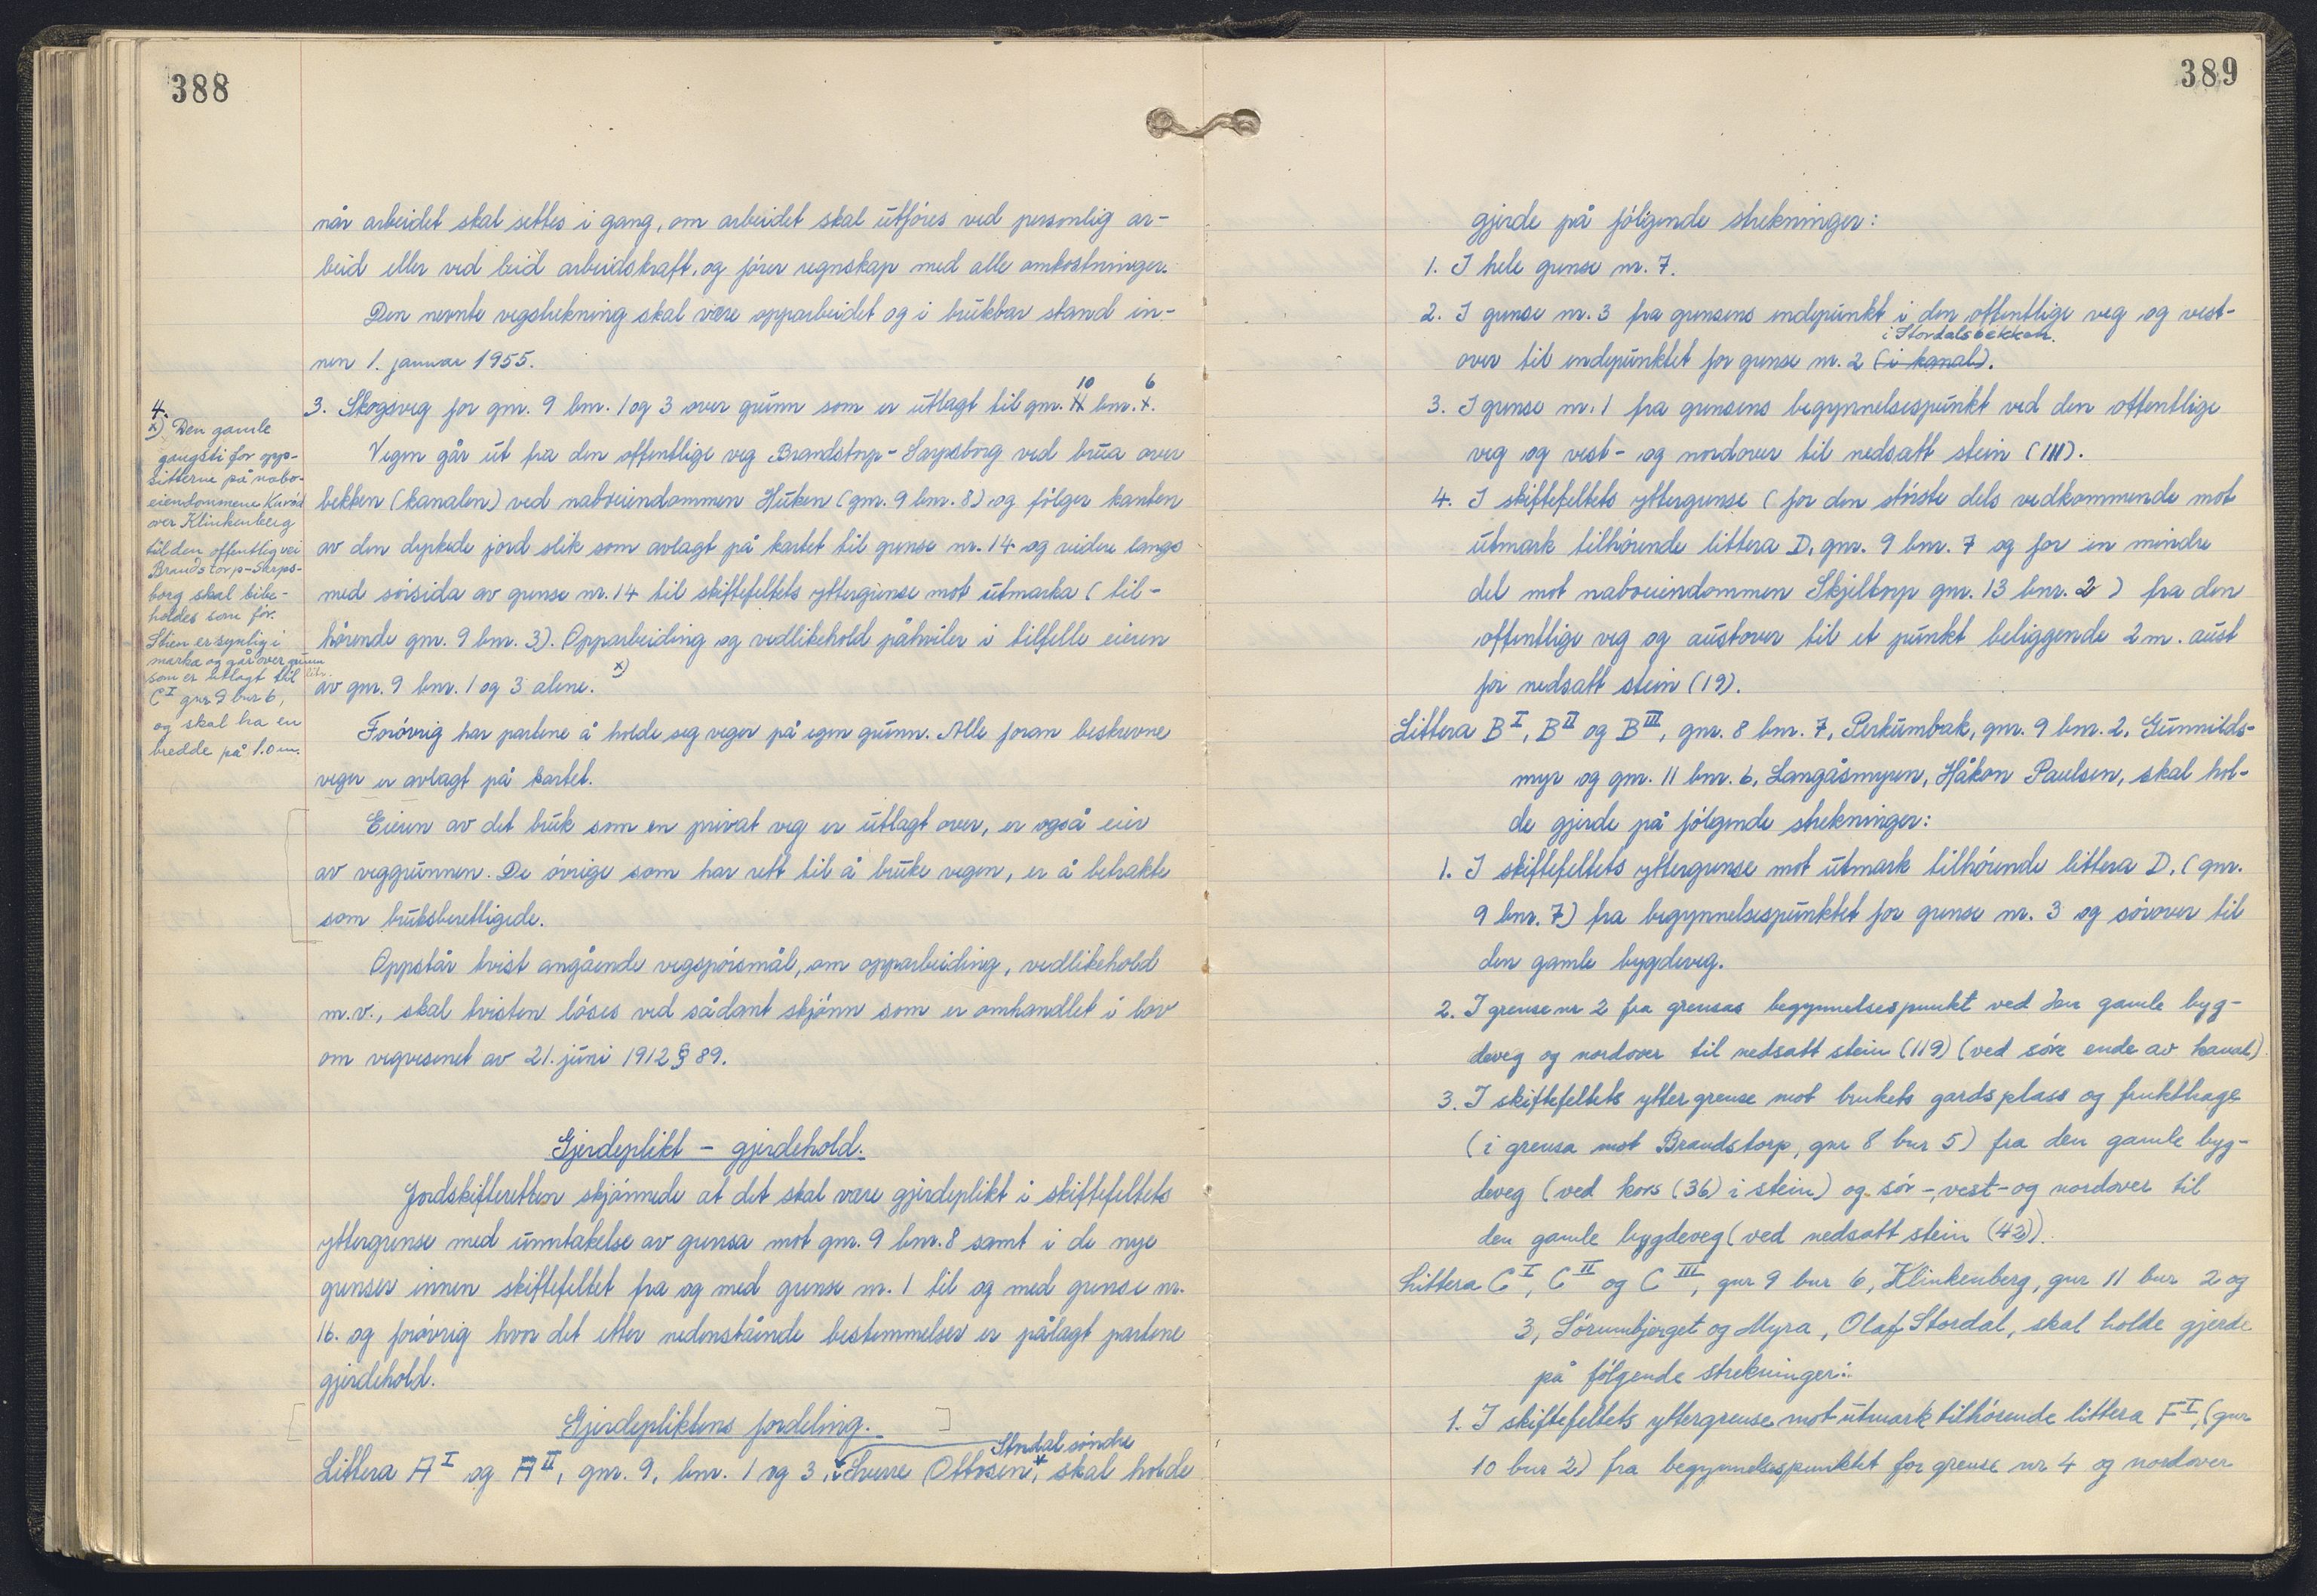 388
når arbeidet skal settes i gang, om arbeidet skal utføres ved personlig ar-
beid eller ved leid arbeidskraft, og fører regnskap med alle omkostninger.
Den nevnte vegstrekning skal være opparbeidet og i brukbar stand in-
nen 1. januar 1955.
10 6
3. Skogsveg for gnr. 9 bnr. 1 og 3 over grunn som er utlagt til gnr. 11 bnr. 7.
Vegen går ut fra den offentlige veg Brandstorp - Sarpsborg ved brua over
bekken (kanalen) ved naboeiendommen Huken (gnr. 9 bnr. 8) og følger kanten
av den dyrkede jord slik som avlagt på kartet til grense nr. 14 og videre langs
med sørsida av grense nr. 14 til skiftefeltets yttergrense mot utmarka (til-
hørende gnr. 9 bnr. 3). Opparbeiding og vedlikehold påhviler i tilfelle eieren
av gnr. 9 bnr. 1 og 3 alene. x)
Forøvrig har partene å holde seg veger på egen grunn. Alle foran beskrevne
veger er avlagt på kartet.
Eieren av det bruk som en privat veg er utlagt over, er også eier
av veggrunnen. De øvrige som har rett til å bruke vegen, er å betrakte
som bruksberettigede.
Oppstår tvist angående vegspørsmål, om opparbeiding, vedlikehold
m.v., skal tvisten løses ved sådant skjønn som er omhandlet i lov
om vegvesenet av 21. juni 1912 § 89.
Gjerdeplikt - gjerdehold.
Jordskifteretten skjønnede at det skal være gjerdeplikt i skiftefeltets
yttergrense med unntakelse av grensa mot gnr. 9 bnr. 8 samt i de nye
grenser innen skiftefeltet fra og med grense nr. 1 til og med grense nr.
16. og forøvrig hvor det etter nedenstående bestemmelser er pålagt partene
gjerdehold.
Gjerdepliktens fordeling.
Stordal søndre
Littera A I og A II, gnr. 9, bnr. 1 og 3, Sverre Ottosen, skal holde
4.
x) Den gamle
gangsti for opp-
sitterne på nabo-
eiendommene
over Klinkenberg
til den offentlig vei
Brandstorp-Sarps-
borg skal bibe-
holdes som før.
Stien er synlig i
marka og går over grunn
som er utlagt til litr.
C I gnr 9 bnr 6,
og skal ha en
bredde på 1.0 m.
389
gjerde på følgende strekninger:
1. I hele grense nr. 7.
2. I grense nr. 3 fra grensens endepunkt i den offentlige veg og vest-
i Stordalsbekken.
over til endepunktet for grense nr. 2 (i kanal).
3. I grense nr. 1 fra grensens begynnelsespunkt ved den offentlige
veg og vest- og nordover til nedsatt stein (111).
4. I skiftefeltets yttergrense (for den største dels vedkommende mot
utmark tilhørende littera D, gnr. 9 bnr. 7 og for en mindre
del mot naboeiendommen Skjeltorp gnr. 13 bnr. 2) fra den
offentlige veg og austover til et punkt beliggende 2 m. aust
for nedsatt stein (19).
Littera B I, B II og B III, gnr. 8 bnr. 7, Perkumbak, gnr. 9 bnr. 2, Gunnilds-
myr og gnr. 11 bnr. 6, Langåsmyren, Håkon Paulsen, skal hol-
de gjerde på følgende strekninger:
1. I skiftefeltets yttergrense mot utmark tilhørende littera D. (gnr.
9 bnr. 7) fra begynnelsespunktet for grense nr. 3 og sørover til
den gamle bygdeveg.
2. I grense nr 2 fra grensas begynnelsespunkt ved den gamle byg-
deveg og nordover til nedsatt stein (119) (ved søre ende av kanal)
3. I skiftefeltets yttergrense mot brukets gardsplass og frukthage
(i grensa mot Brandstorp, gnr 8 bnr 5) fra den gamle byg-
deveg (ved kors (36) i stein) og sør-, vest- og nordover til
den gamle bygdeveg (ved nedsatt stein (42)).
Littera C I, C II og C III, gnr 9 bnr 6, Klinkenberg, gnr 11 bnr 2 og
3, Sørumbjerget og Myra, Olaf Stordal, skal holde gjerde
på følgende strekninger:
1. I skiftefeltets yttergrense mot utmark tilhørende littera F I, (gnr
10 bnr 2) fra begynnelsespunktet for grense nr 4 og nordover